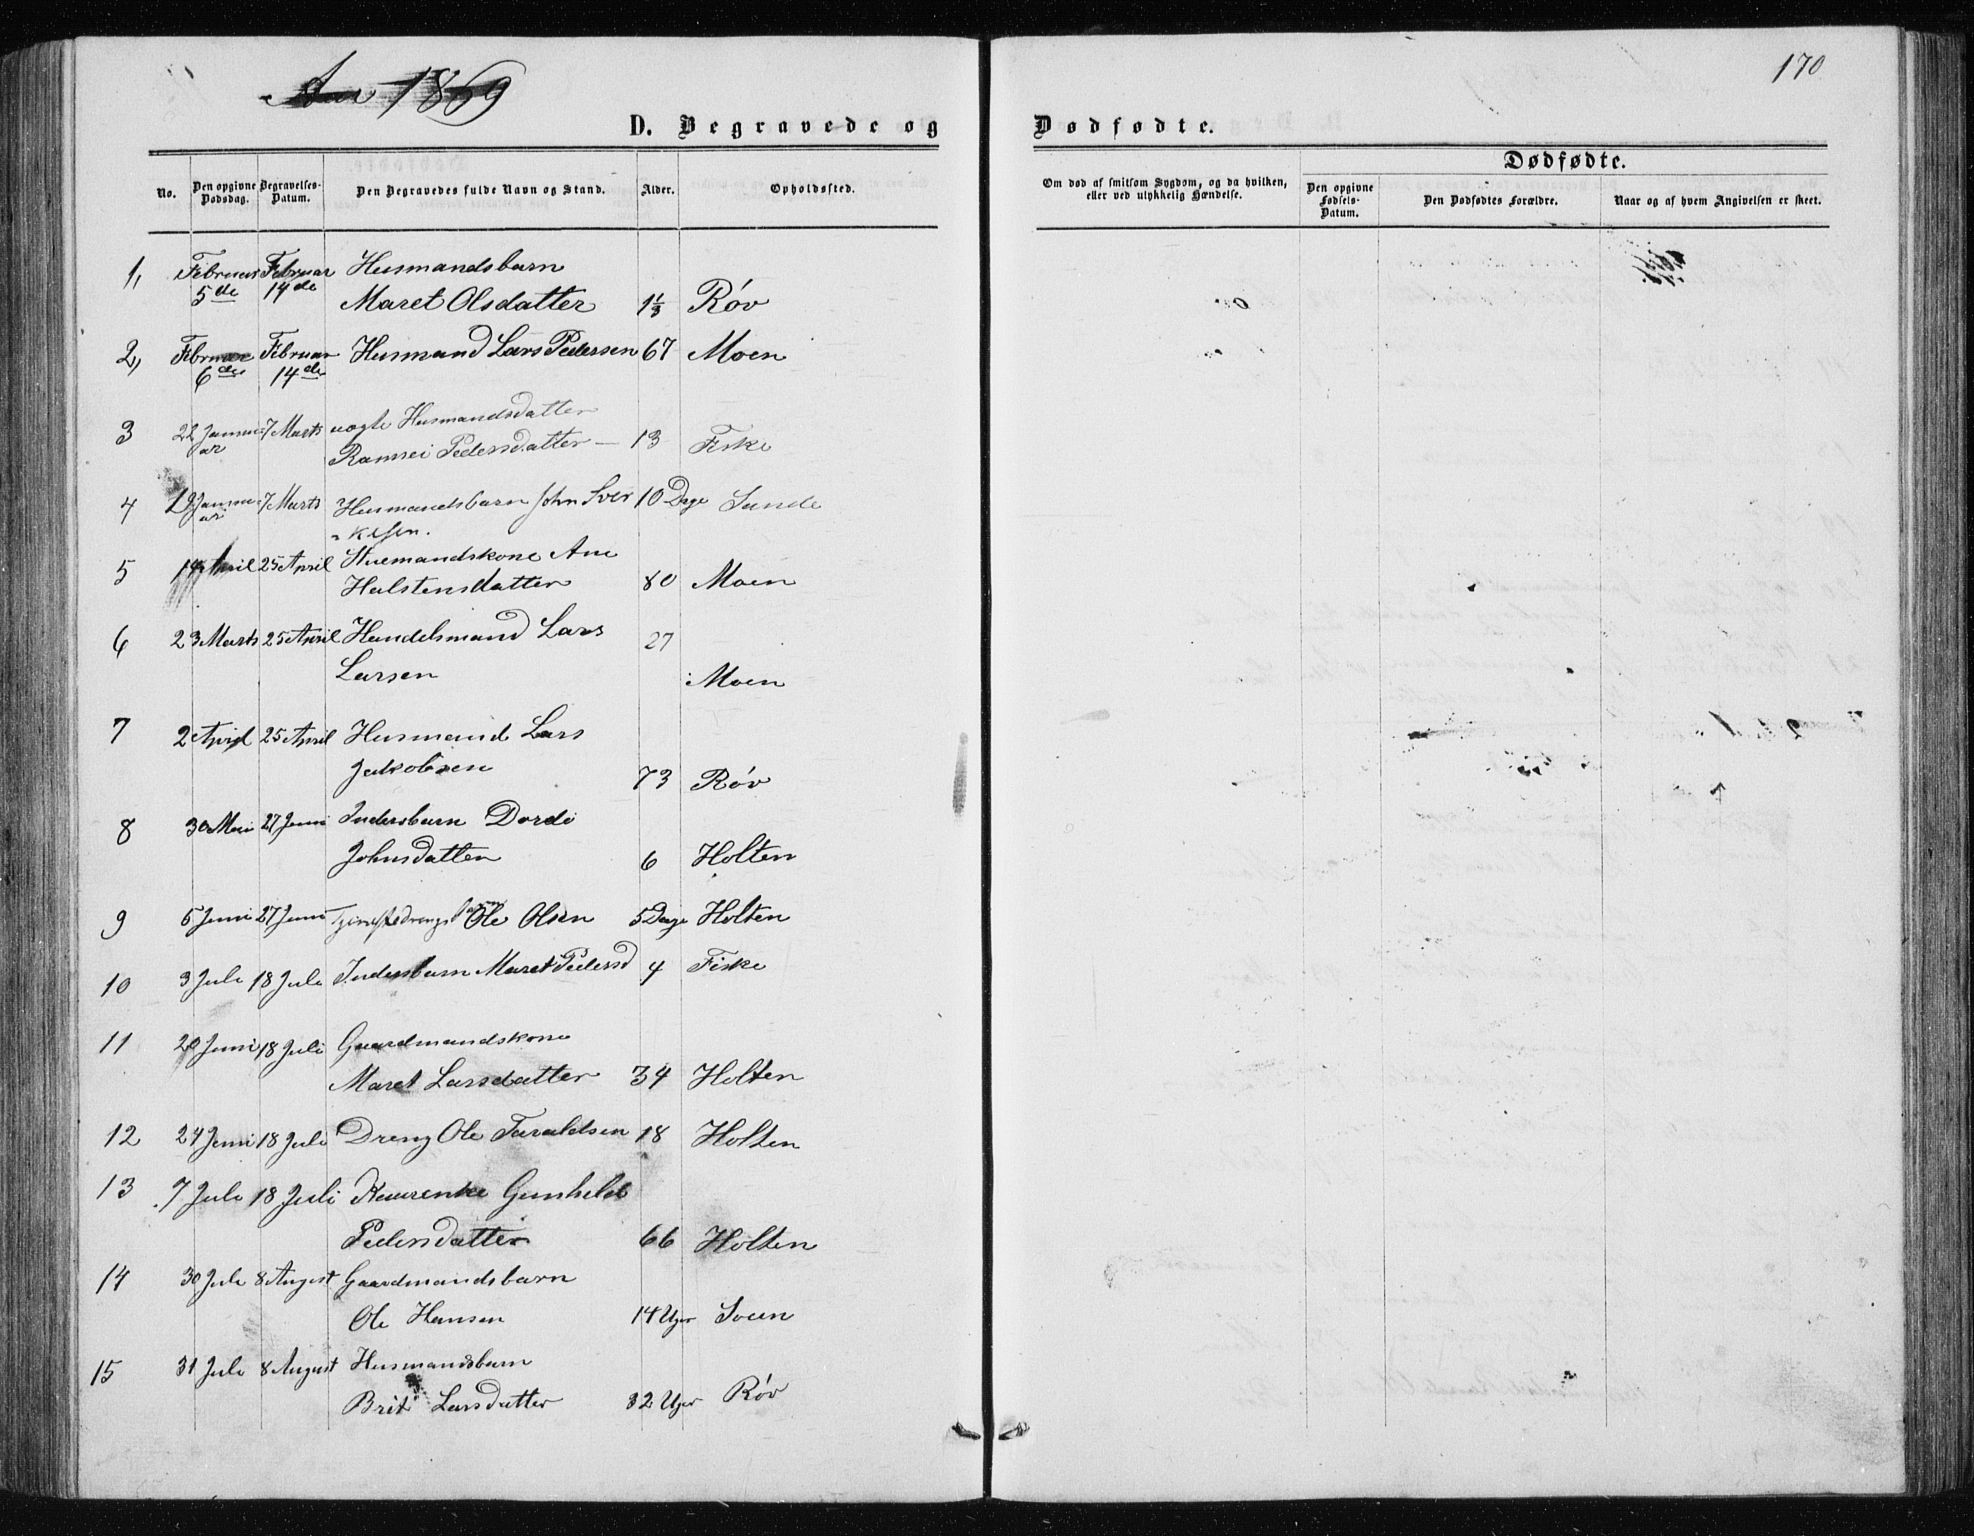 Aar 1869
170
D. Begravede og
Dødfødte.
Dødfødte.
No.
Den opgivne Dødsdag.
Begravelses-Datum.
Den Begravedes fulde Navn og Stand.
Alder.
Opholdssted.
Om død af smitsom Sygdom, og da hvilken,
eller ved ulykkelig Hændelse.
Den opgivne Fødsels-Datum.
Den Dødfødtes Forældre.
Naar og af hvem Angivelsen er skeet.
1, Februar Februar Husmandsbarn
5de 14de Maret Olsdatter 1 1/3 Røv
2, Februar Februar Husmand Lars Pedersen 67 Moen
6de 14de
3 22 Janu- 7 Marts Husmandsdatter
ar Pedersdatter — 13 Fiske
4 19 Janu- 7 Marts Husmandsbarn John Sver 10 Dage Sunde
ar
5 April 25 April Husmandskone Ane
Halstensdatter 80 Moen
6 23 Marts 25 April Handelsmand Lars 27
Larsen Moen
7 2 April 25 April Husmand Lars
Jakobsen 73 Røv
8 30 Mai 27 Juni Inderstbarn Dordi
Johnsdatter 6 Holten
9 5 Juni 27 Juni Ole Olsen 5 Dage Holten
10 3 Juli 18 Juli Inderstbarn Maret Pedersd 4 Fiske
11 20 Juni 18 Juli Gaardmandskone
Maret Larsdatter 34 Holten
12 24 Juni 18 Juli Dreng Ole Taraldsen 18 Holten
13 7 Juli 18 Juli Gunhild
Pedersdatter 66 Holten
14 30 Juli 8 August Gaardmandsbarn
Ole Hansen 14 Uger Soen
15 31 Juli 8 August Husmandsbarn
Brit Larsdatter 32 Uger Røv